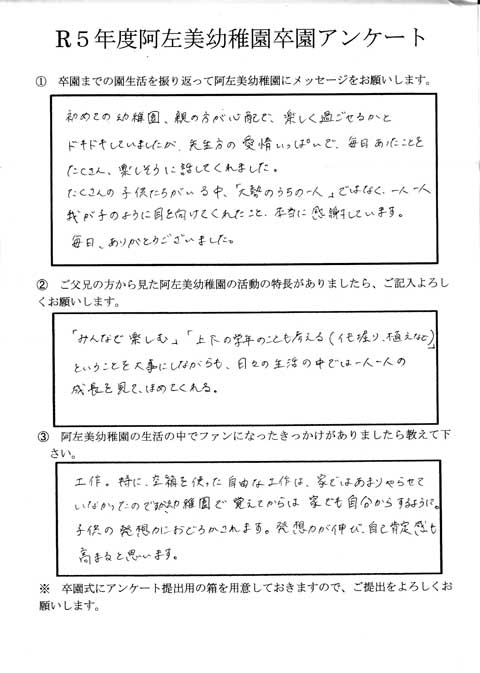 R５年度阿左美幼稚園卒園アンケート
① 卒園までの園生活を振り返って阿左美幼稚園にメッセージをお願いします。
初めての幼稚園、親の方が心配で、楽しく過ごせるかと
ドキドキしていましたが、先生方の愛情いっぱいで、毎日あったことを
たくさん、楽しそうに話してくれました。
たくさんの子供たちがいる中、「大勢のうちの一人」ではなく、一人一人
我が子のように目を向けてくれたこと、本当に感謝しています。
毎日、ありがとうございました。
② ご父兄の方から見た阿左美幼稚園の活動の特長がありましたら、ご記入よろし
くお願いします。
「みんなで楽しむ」「上下の学年のことも考える(イモ堀り、植えなど)」
ということを大事にしながらも、日々の生活の中では一人一人の
成長を見て、ほめてくれる。
③ 阿左美幼稚園の生活の中でファンになったきっかけがありましたら教えて下
さい。
工作。特に、空箱を使った自由な工作は、家ではあまりやらせて
いなかったのですが幼稚園で覚えてからは家でも自分からするように。
子供の発想力におどろかされます。発想力が伸び、自己肯定感も
高まると思います。
※ 卒園式にアンケート提出用の箱を用意しておきますので、ご提出をよろしくお
願いします。